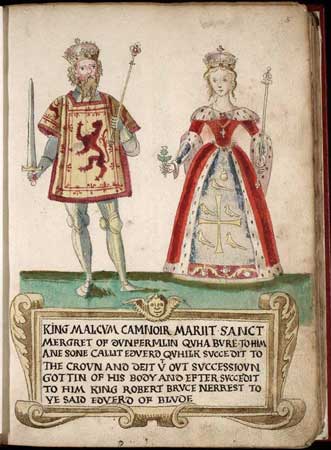 KING MALCVM CAMNOIR MARIIT SANCT
MERGRET OF DVNFERMLIN QVHA BVRE TO HIM
ANE SONE CALLIT EDVERD QVHILK SVCCEDIT TO
THE CROVN AND DEIT V̇ OVT SVCCESSIOVN
GOTTIN OF HIS BODY AND EFTER SVCCEDIT
TO HIM KING ROBERT BRVCE NERREST TO
YE SAID EDVERD OF BLVDE